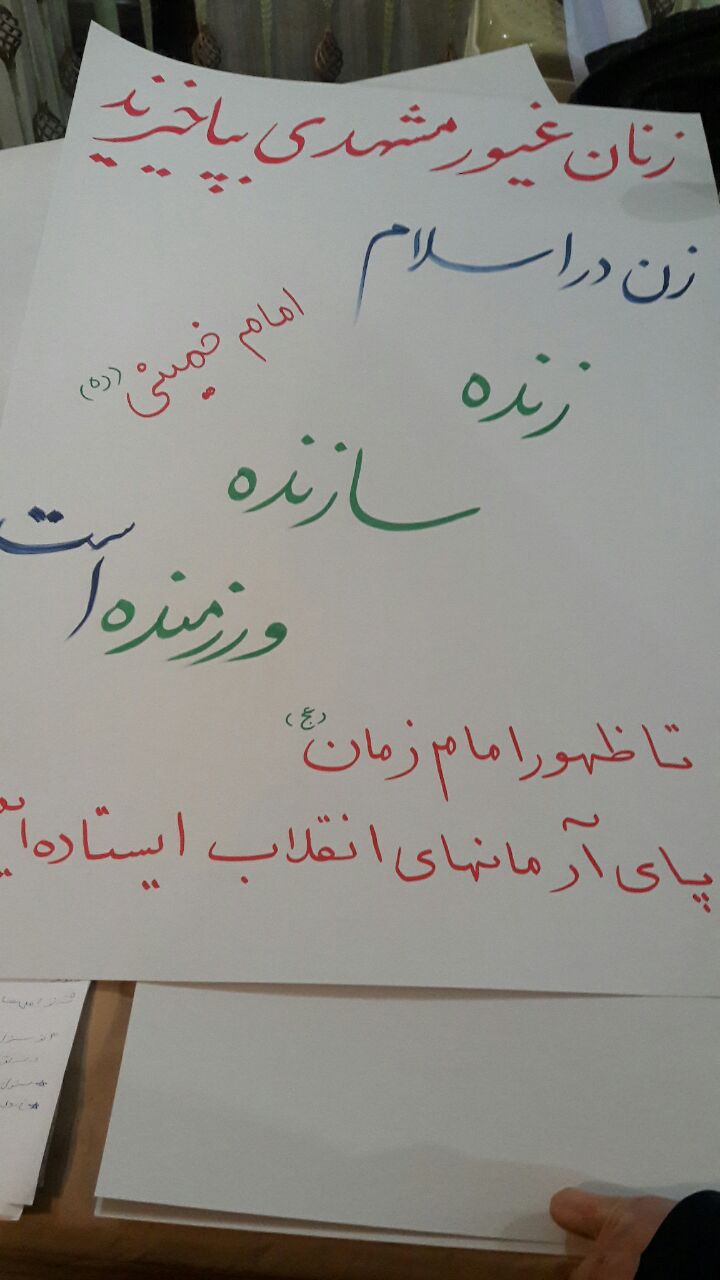 زنان غیور مشهدی بپاخیزند
زن در اسلام
زنده
امام خمینی (ره)
سازنده
ورزمنده است
تا ظهور امام زمان (عج)
پای آرمانهای انقلاب ایستاده‌ایم